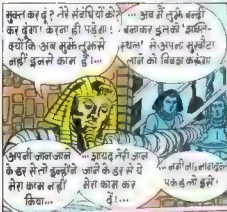 मुक्त कर दूं? तेरे संबंधियों को?
कर दूंगा! करना ही पड़ेगा!
क्योंकि अब मुझे तुझसे
नहीं इनसे काम है!...
... अब मैं तुझे बन्दी
बनाकर इनकी शक्ति-
स्थल से अपना मुखौटा
लाने को विवश करूंगा
अपनी जान जाने
के डर से तो इन्होंने
मेरा काम नहीं
किया...
... शायद तेरी जान
जाने के डर से ये
मेरा काम कर
दें!...
पकड़ लो इसे!